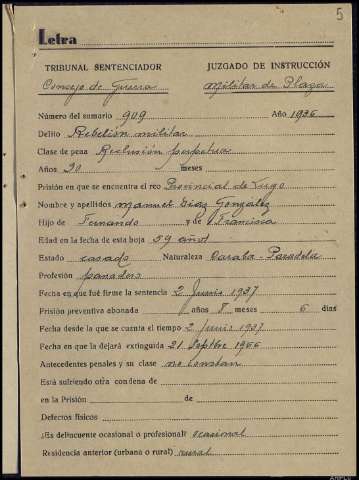 5
Letra
TRIBUNAL SENTENCIADOR JUZGADO DE INSTRUCCIÓN
Consejo de Guerra Militar de Plaza
Número del sumario 909 Año 1936
Delito Rebelión militar
Clase de pena Reclusión perpetua
Años 30 meses
Prisión en que se encuentra el reo Provincial de Lugo
Nombre y apellidos Manuel Díaz González
Hijo de Fernando y de Francisca
Edad en la fecha de esta hoja 59 años
Estado casado Naturaleza Paradela
Profesión panadero
Fecha en que fué firme la sentencia 2 Junio 1937
Prisión preventiva abonada años 8 meses 6 días
Fecha desde la que se cuenta el tiempo 2 Junio 1937
Fecha en que la dejará extinguida 21 Septbre 1966
Antecedentes penales y su clase no constan
Está sufriendo otra condena de
en la Prisión de
Defectos físicos
¿Es delincuente ocasional o profesional? ocasional
Residencia anterior (urbana o rural) rural